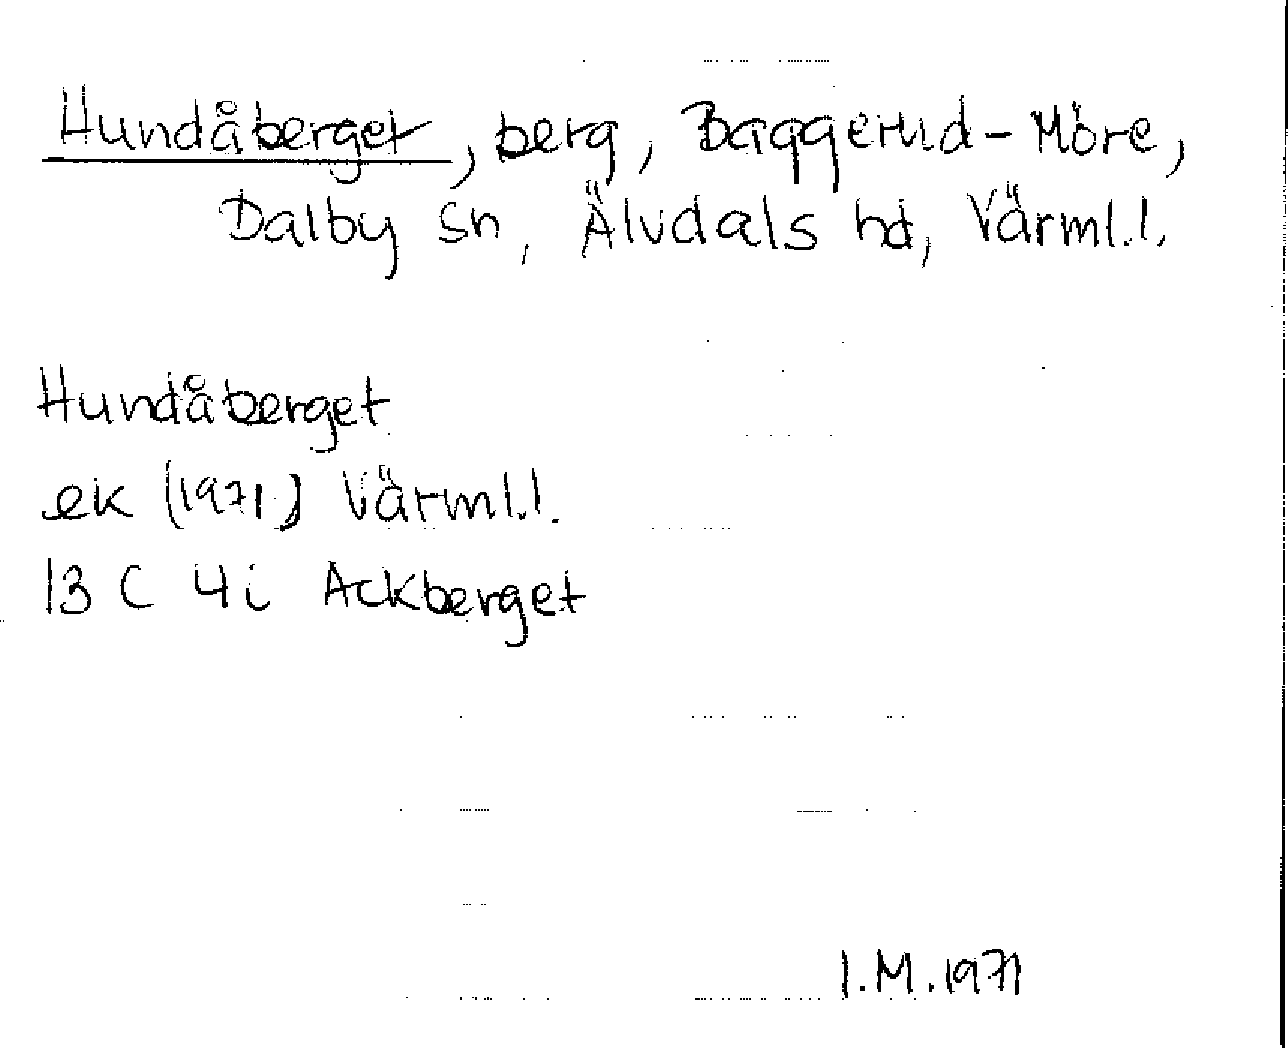 Hundåberget, berg, Baggerud-Möre,
Dalby sn, Älvdals hd, Värml.l.
Hundåberget
ek (1971) Värml.l.
13 C 4i Ackberget
I.M.1971